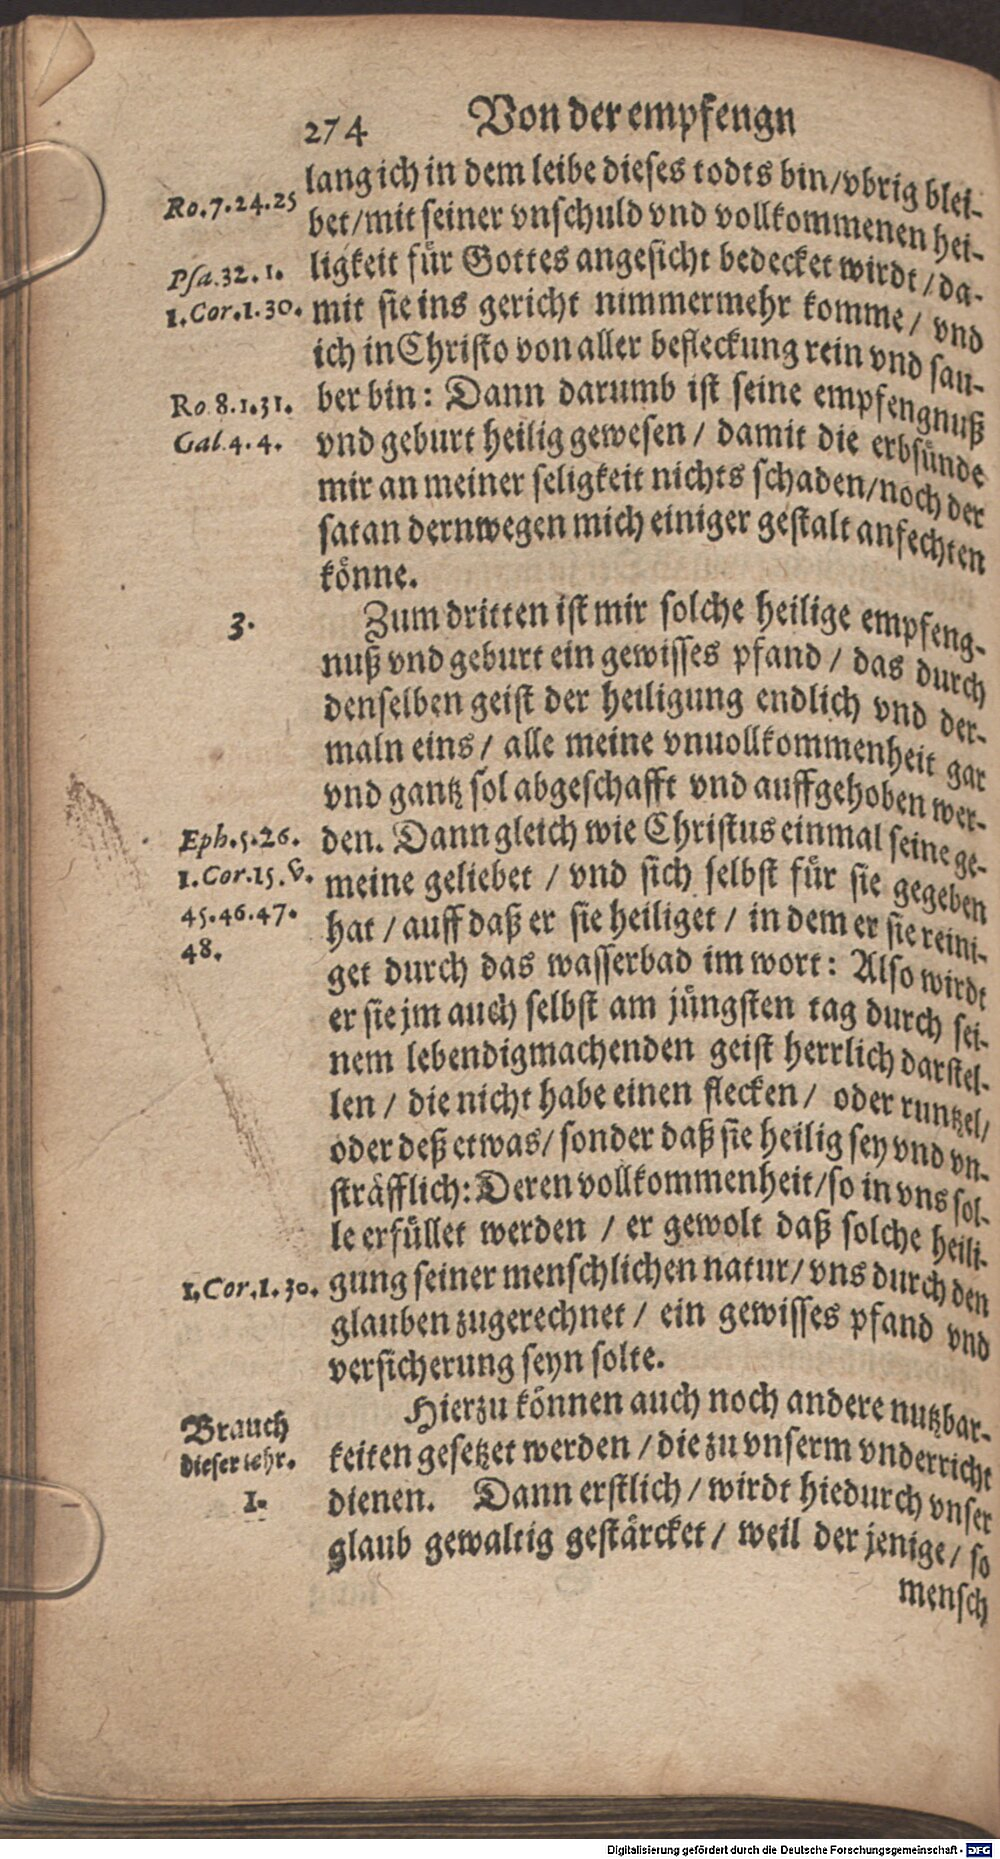 274 Von der empfengn
lang ich in dem leibe dieses todts bin/vbrig blei-
Ro.7.24.25
bet/mit seiner vnschuld vnd vollkommenen hei-
ligkeit für Gottes angesicht bedecket wirdt/da-
Psa.32.1.
mit sie ins gericht nimmermehr komme/ vnd
1.Cor.1.30.
ich in Christo von aller befleckung rein vnd sau-
ber bin: Dann darumb ist seine empfengnuß
Ro 8.1.31.
vnd geburt heilig gewesen/ damit die erbsünde
Gal.4.4.
mir an meiner seligkeit nichts schaden/noch der
satan dernwegen mich einiger gestalt anfechten
könne.
3.
Zum dritten ist mir solche heilige empfeng-
nuß vnd geburt ein gewisses pfand/ das durch
denselben geist der heiligung endlich vnd der-
maln eins/ alle meine vnuollkommenheit gar
vnd gantz sol abgeschafft vnd auffgehoben wer-
den. Dann gleich wie Christus einmal seine ge-
Eph.5.26.
meine geliebet/ vnd sich selbst für sie gegeben
1.Cor.15.v.
hat/ auff daß er sie heiliget/ in dem er sie reini-
45.46.47.
get durch das wasserbad im wort: Also wirdt
48.
er sie jm auch selbst am jüngsten tag durch sei-
nem lebendigmachenden geist herrlich darstel-
len/ die nicht habe einen flecken/ oder runtzel/
oder deß etwas/ sonder daß sie heilig sey vnd vn-
sträfflich: Deren vollkommenheit/so in vns sol-
le erfüllet werden/ er gewolt daß solche heili-
gung seiner menschlichen natur/ vns durch den
1.Cor.1.30.
glauben zugerechnet/ ein gewisses pfand vnd
versicherung seyn solte.
Hierzu können auch noch andere nutzbar-
Brauch
keiten gesetzet werden/ die zu vnserm vnderricht
dieser lehr.
dienen. Dann erstlich/ wirdt hiedurch vnser
1.
glaub gewaltig gestärcket/ weil der jenige/ so
mensch
Digitalisierung gefördert durch die Deutsche Forschungsgemeinschaft - DFG